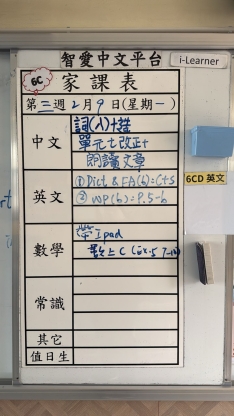 智愛中文平台
i-Learner
6C
家課表
第三週2月9日(星期一)
中文
詞(八)+
單元七改正+
閱讀文章
英文
①Dict & FA(6)=C+S
② WP(6)=P.5-6
6CD 英文
數學
帶Ipad
數上C
常識
其它
值日生